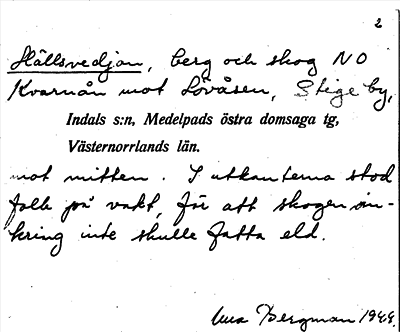 2
Hällsvedjan, berg och skog NO
Kvarnån mot Lövåsen, Stige by,
Indals s:n, Medelpads östra domsaga tg,
Västernorrlands län.
mot mitten. I utkanterna stod
folk på vakt, för att skogen om-
kring inte skulle fatta eld.
Bergman 1944.